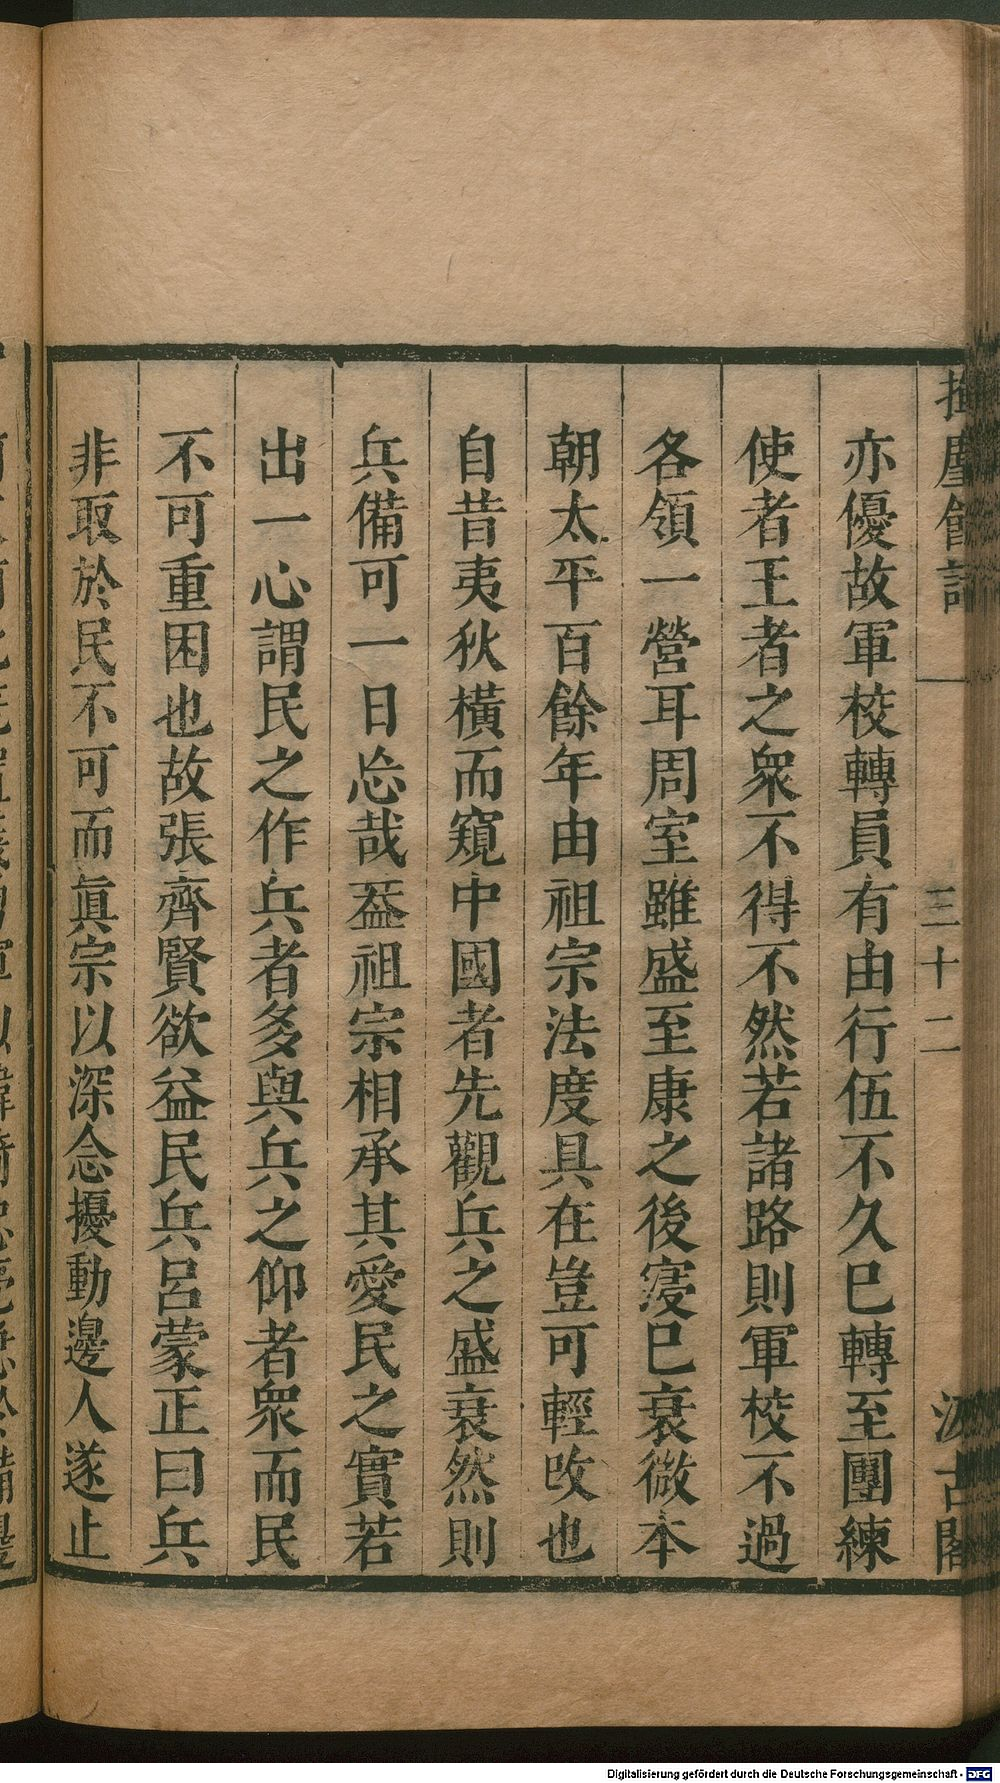 揮麈餘話 三十二 汲古閣
亦優故軍校轉員有由行伍不久巳轉至團練
使者王者之衆不得不然若諸路則軍校不過
各領一營耳周室雖盛至康之後寖巳衰微本
朝太平百餘年由祖宗法度具在豈可輕改也
自昔夷狄橫而窺中國者先觀兵之盛衰然則
兵備可一日忘哉葢祖宗相承其愛民之實若
出一心謂民之作兵者多與兵之仰者衆而民
不可重困也故張齊賢欲益民兵呂蒙正曰兵
非取於民不可而眞宗以深念擾動邊人遂止
Digitalisierung gefördert durch die Deutsche Forschungsgemeinschaft - DFG